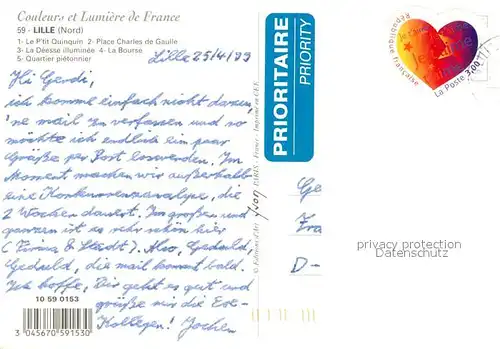 Couleurs et Lumière de France
59 - LILLE (Nord)
1- Le P'tit Quinquin 2- Place Charles de Gaulle
3- La Déesse illuminée 4- La Bourse
5- Quartier piétonnier
Lille 25/4/99
Hi Gerdi,
ich komme einfach nicht darum,
'ne mail zu verfassen und so
möchte ich endlich ein paar
Grüße per Post loswerden. Im
Moment machen wir außerhalb
eine Konkurrenzanalyse, die
2 Wochen dauert. Im großen und
ganzen ist es sehr schön hier
(Firma & Stadt). Also, Geduld,
Geduld, die mail kommt bald.
Ich hoffe, Dir geht es gut und
grüße mir die
Kollegen! Jochen
10 59 0153
3 045670 591530
PRIORITAIRE
PRIORITY
© Editions d'Art Yvon PARIS - France - Imprimé en CEE
République française
La Poste 3,00
Ge
Fra
D-
privacy protection
Datenschutz